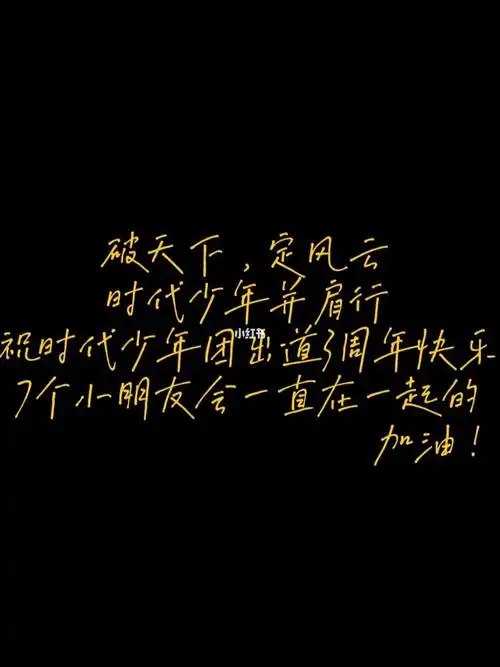 破天下，定风云
时代少年并肩行
小红书
祝时代少年团出道3周年快乐
7个小朋友会一直在一起的
加油！